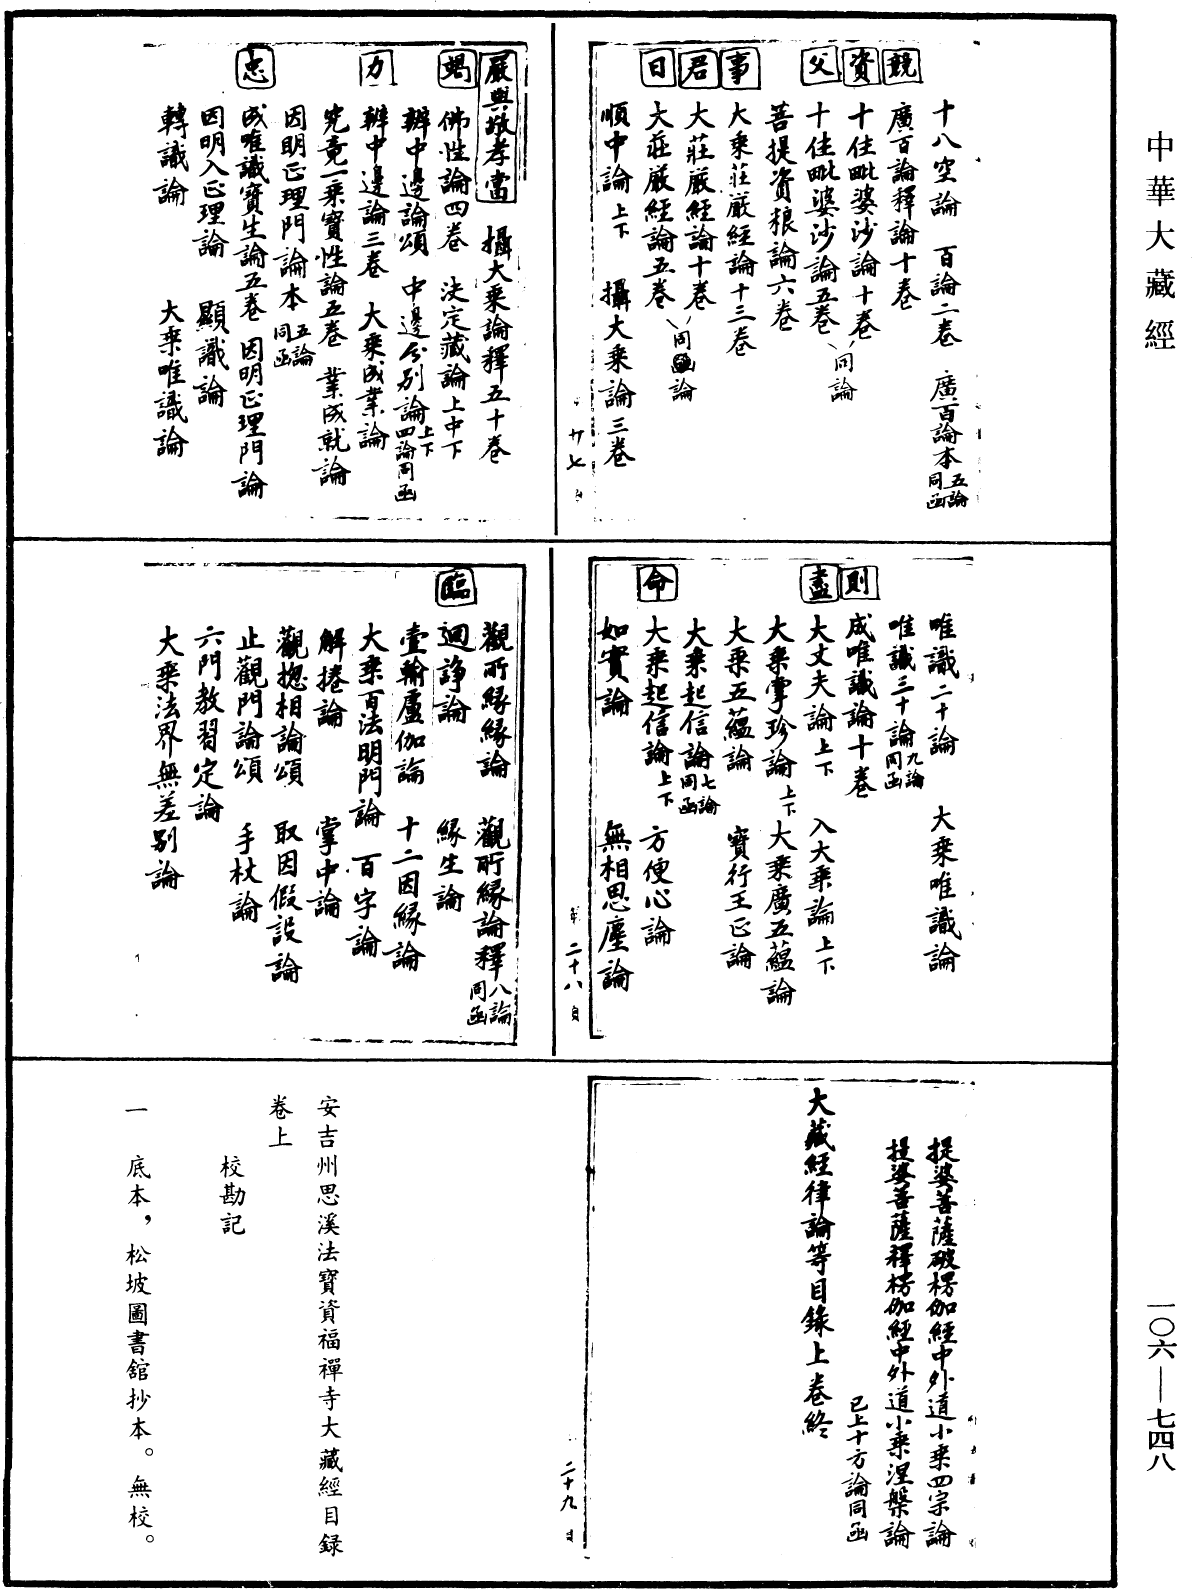 中華大藏經
一〇六—七四八
十八空論　百論二卷　廣百論本五論同函
競　廣百論釋論十卷
資　十住毗婆沙論十卷
父　十住毗婆沙論五卷　同論
菩提資粮論六卷
事　大乗莊嚴經論十三卷
君　大莊嚴經論十卷
曰　大莊嚴經論五卷　同函論
順中論上下　攝大乗論三卷
廿七
嚴與敬孝當　攝大乗論釋五十卷
竭　佛性論四卷　決定藏論上中下
辯中邊論頌　中邊分别論上下四論同函
力　辯中邊論三卷　大乗成業論
究竟一乗寳性論五卷　業成就論
因明正理門論本五論同函
忠　成唯識寳生論五卷　因明正理門論
因明入正理論　顯識論
轉識論　大乗唯識論
唯識二十論　大乗唯識論
唯識三十論九論同函
則　成唯識論十卷
盡　大丈夫論上下　入大乗論上下
大乗掌珍論上下　大乗廣五蘊論
大乗五蘊論　寳行王正論
大乗起信論七論同函
命　大乗起信論上下　方便心論
如實論　無相思塵論
二十八
觀所緣緣論　觀所緣論釋八論同函
臨　迴諍論　緣生論
壹輸盧伽論　十二因緣論
大乗百法明門論　百字論
解捲論　掌中論
觀揔相論頌　取因假設論
止觀門論頌　手杖論
六門教習定論
大乗法界無差别論
提婆菩薩破楞伽經中外道小乗四宗論
提婆菩薩釋楞伽經中外道小乗涅槃論
已上十方論同函
大藏經律論等目錄上卷終
二十九
安吉州思溪法寶資福禪寺大藏經目録
卷上
校勘記
一　底本，松坡圖書舘抄本。無校。